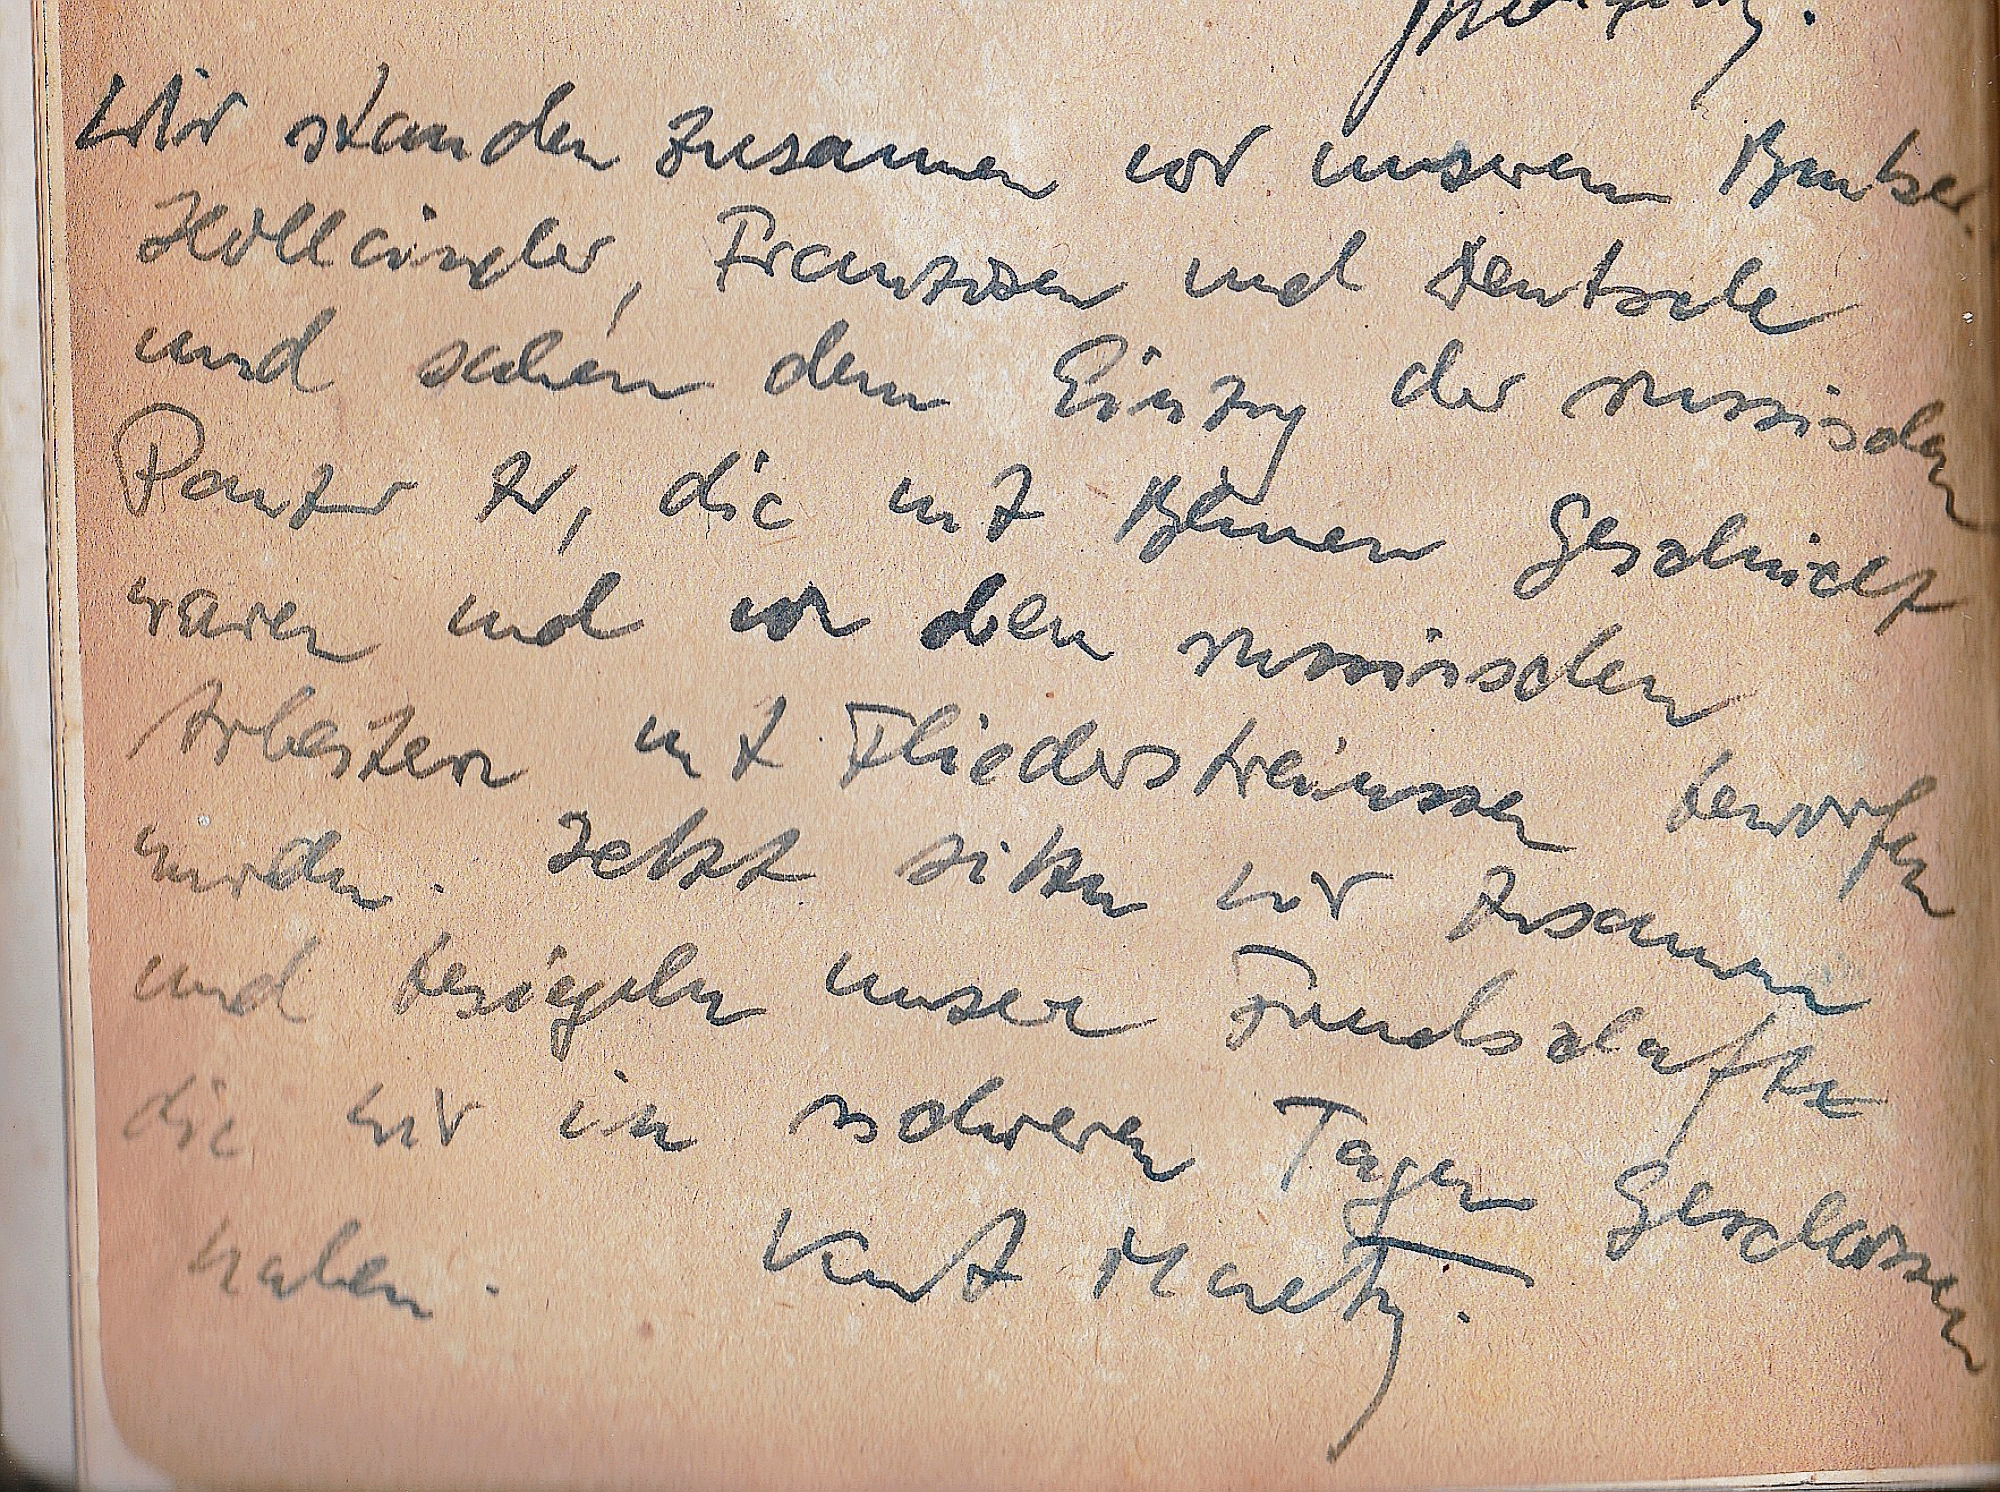 Wir standen zusamen vor unserem Bunker.
Holländer, Franzosen und Deutsche
und sahen dem Einzug der russischen
Panzer zu, die mit Blumen geschmückt
waren und von den russischen
Arbeitern mit Fliedersträussen beworfen
wurden. Jetzt sitzen wir zusamen
und besiegeln unsere Freundschaft
die wir in schweren Tagen geschlossen
haben. Kurt